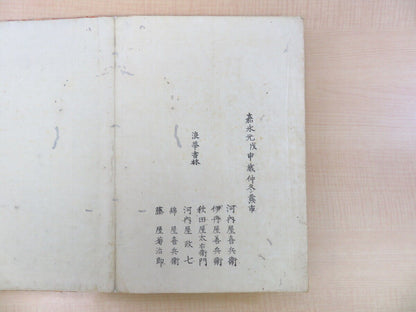 嘉永元戊申歳仲冬発市
浪華書林
河内屋喜兵衛
伊丹屋善兵衛
秋田屋太右衛門
河内屋政七
綿屋喜兵衛
藤屋菊治郎